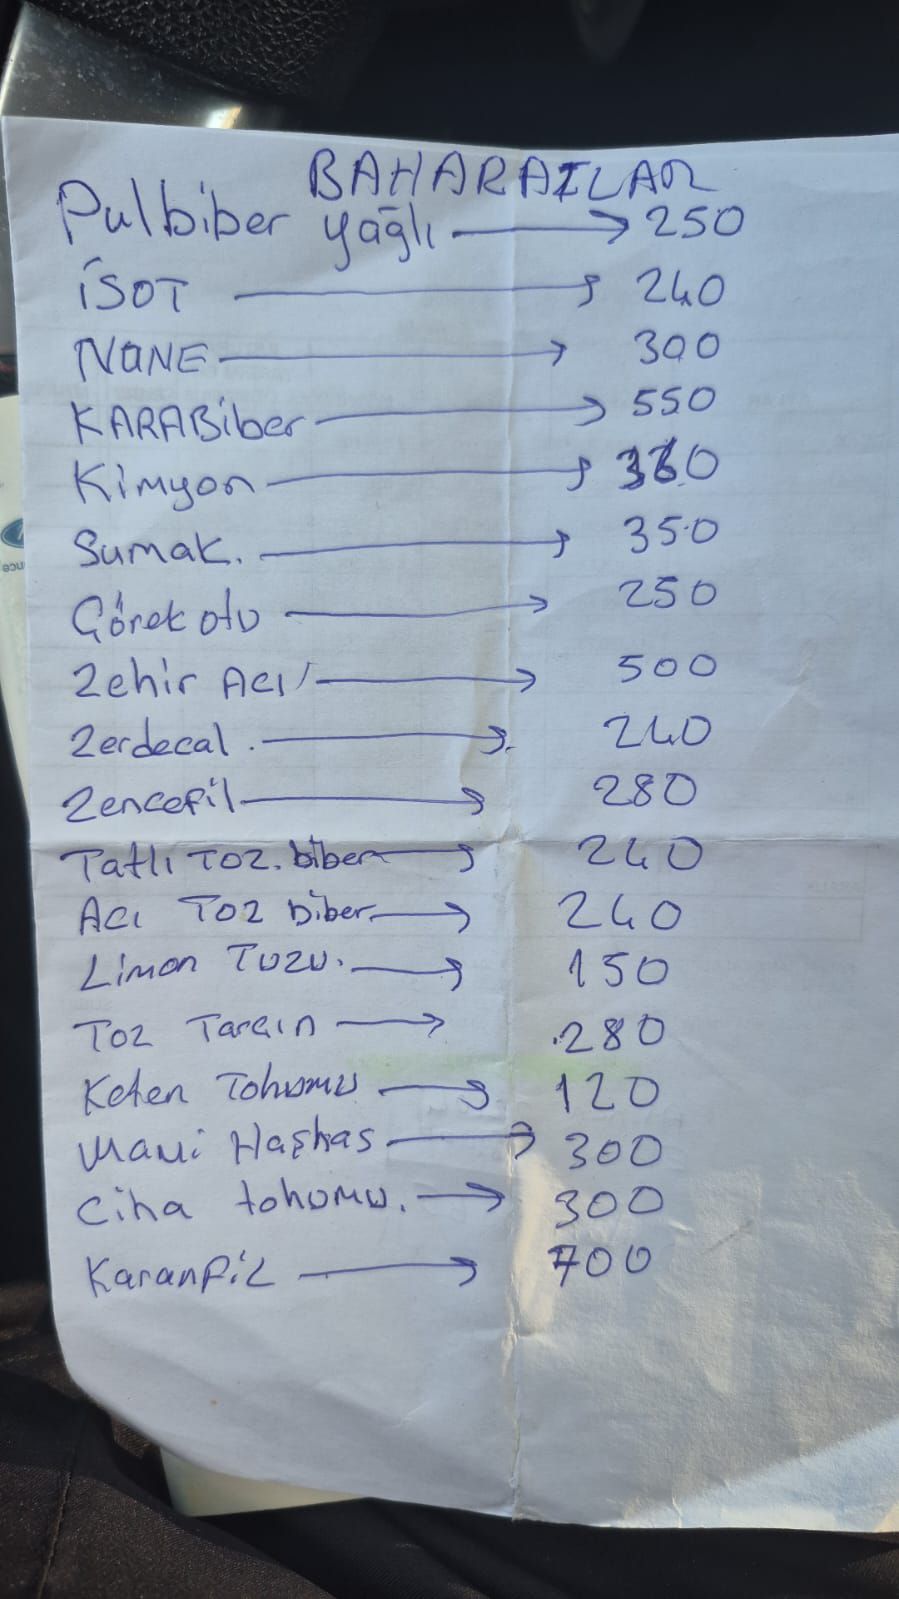 BAHARATLAR
Pulbiber yağlı → 250
İSOT → 240
NANE → 300
KARABiber → 550
Kimyon → 360
Sumak. → 350
Çörek otu → 250
Zehir ACI → 500
Zerdecal. → 240
Zencefil → 280
Tatlı TOZ. biber → 240
ACI TOZ biber → 240
Limon TUZU. → 150
TOZ Tarçın → 280
Keten Tohumu → 120
Mavi Haşhas → 300
Ciha tohumu. → 300
KaranFiL → 700